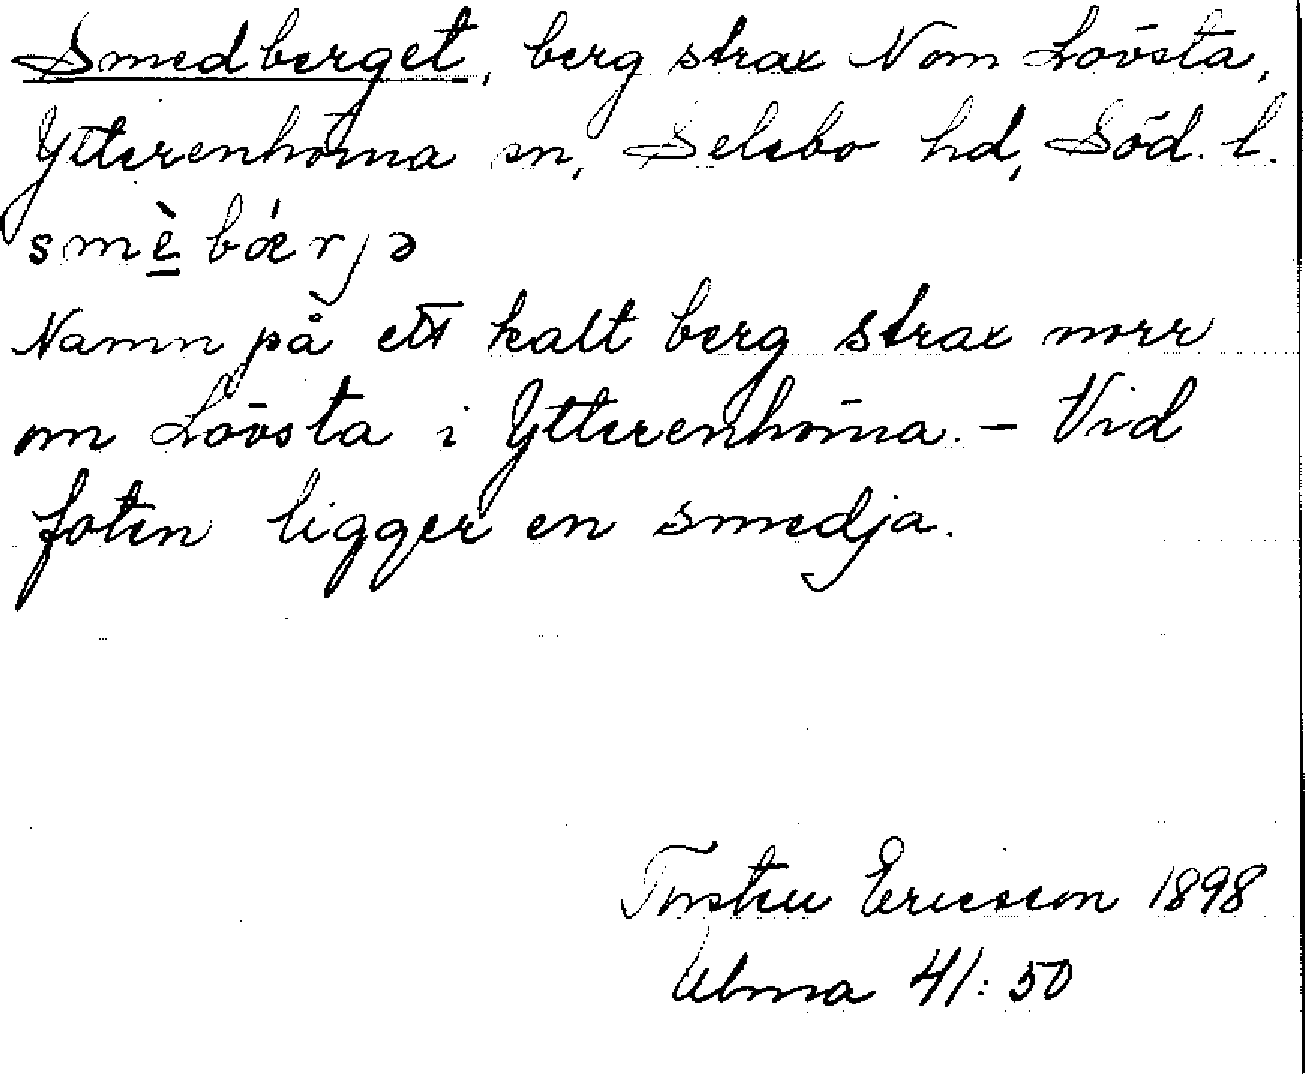 Smedberget, berg strax N om Lövsta,
Ytterenhörna sn, Selebo hd, Söd. l.
smè̠bǽrjə
Namn på ett kalt berg strax norr
om Lövsta i Ytterenhörna. – Vid
foten ligger en smedja.
Torsten Ericsson 1898
Ulma 41:50